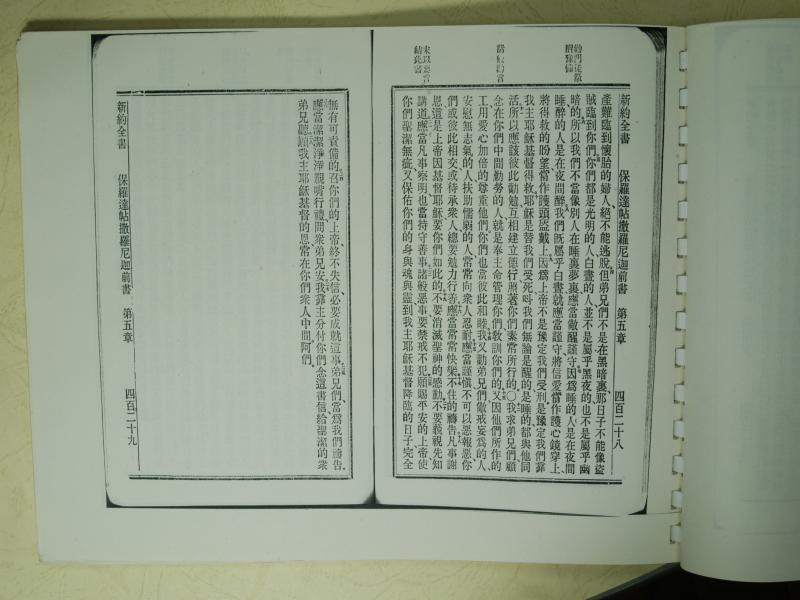 勸門徒儆醒豫備
醫以勸言
末以要言結此書
新約全書 保羅達帖撒羅尼迦前書 第五章 四百二十八
產難臨到懷胎的婦人絕不能逃脫但弟兄們不是在黑暗裏那日子不能像盜
賊臨到你們你們都是光明的人白晝的人並不是屬乎黑夜的也不是屬乎幽
暗的所以我們不當像別人在睡夢裏應當儆醒謹守因爲睡的人是在夜間
睡醉的人是在夜間醉我們既屬乎白晝就應當謹守將信愛當作護心鏡穿上
將得救的盼望當作護頭盔戴上因爲上帝不是豫定我們受刑是豫定我們靠
我主耶穌基督得救耶穌是替我們受死呌我們無論是醒的是睡的都與他同
活所以應該彼此勸勉互相建立德行照著你們素常所行的〇我求弟兄們顧
念在你們中間勤勞的人就是奉主命管理你們敎訓你們的又因他們所作的
工用愛心加倍的尊重他們你們也當彼此和睦我又勸弟兄們儆戒妄爲的人
安慰無志氣的人扶助懦弱的人常常向衆人忍耐應當謹愼不可以惡報惡你
們或彼此相交或待衆人總要勉力行善應當常常快樂不住的禱告凡事謝
恩這是上帝因基督耶穌要你們如此的不要消滅聖神的感動不要藐視先知
講道應當凡事察明也當持守善事諸般惡事要禁戒不犯願賜平安的上帝使
你們聖潔無疵又保佑你們的身與魂與靈到我主耶穌基督降臨的日子完全
無有可責備的召你們的上帝終不失信必要成就這事弟兄們當爲我們禱告
應當潔潔淨淨親嘴行禮問衆弟兄安我靠主分付你們念這書信給聖潔的衆
弟兄聽願我主耶穌基督的恩常在你們衆人中間阿們
新約全書 保羅達帖撒羅尼迦前書 第五章 四百二十九